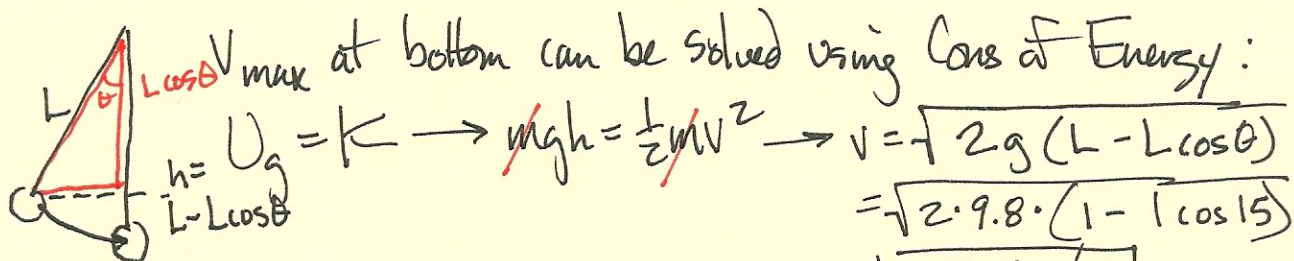 V max at bottom can be solved using Cons of Energy:
L θ L cosθ
U g = K → mgh = ½mv² → v = √2g(L - L cosθ)
h = L - L cosθ
= √2·9.8·(1 - 1 cos 15)